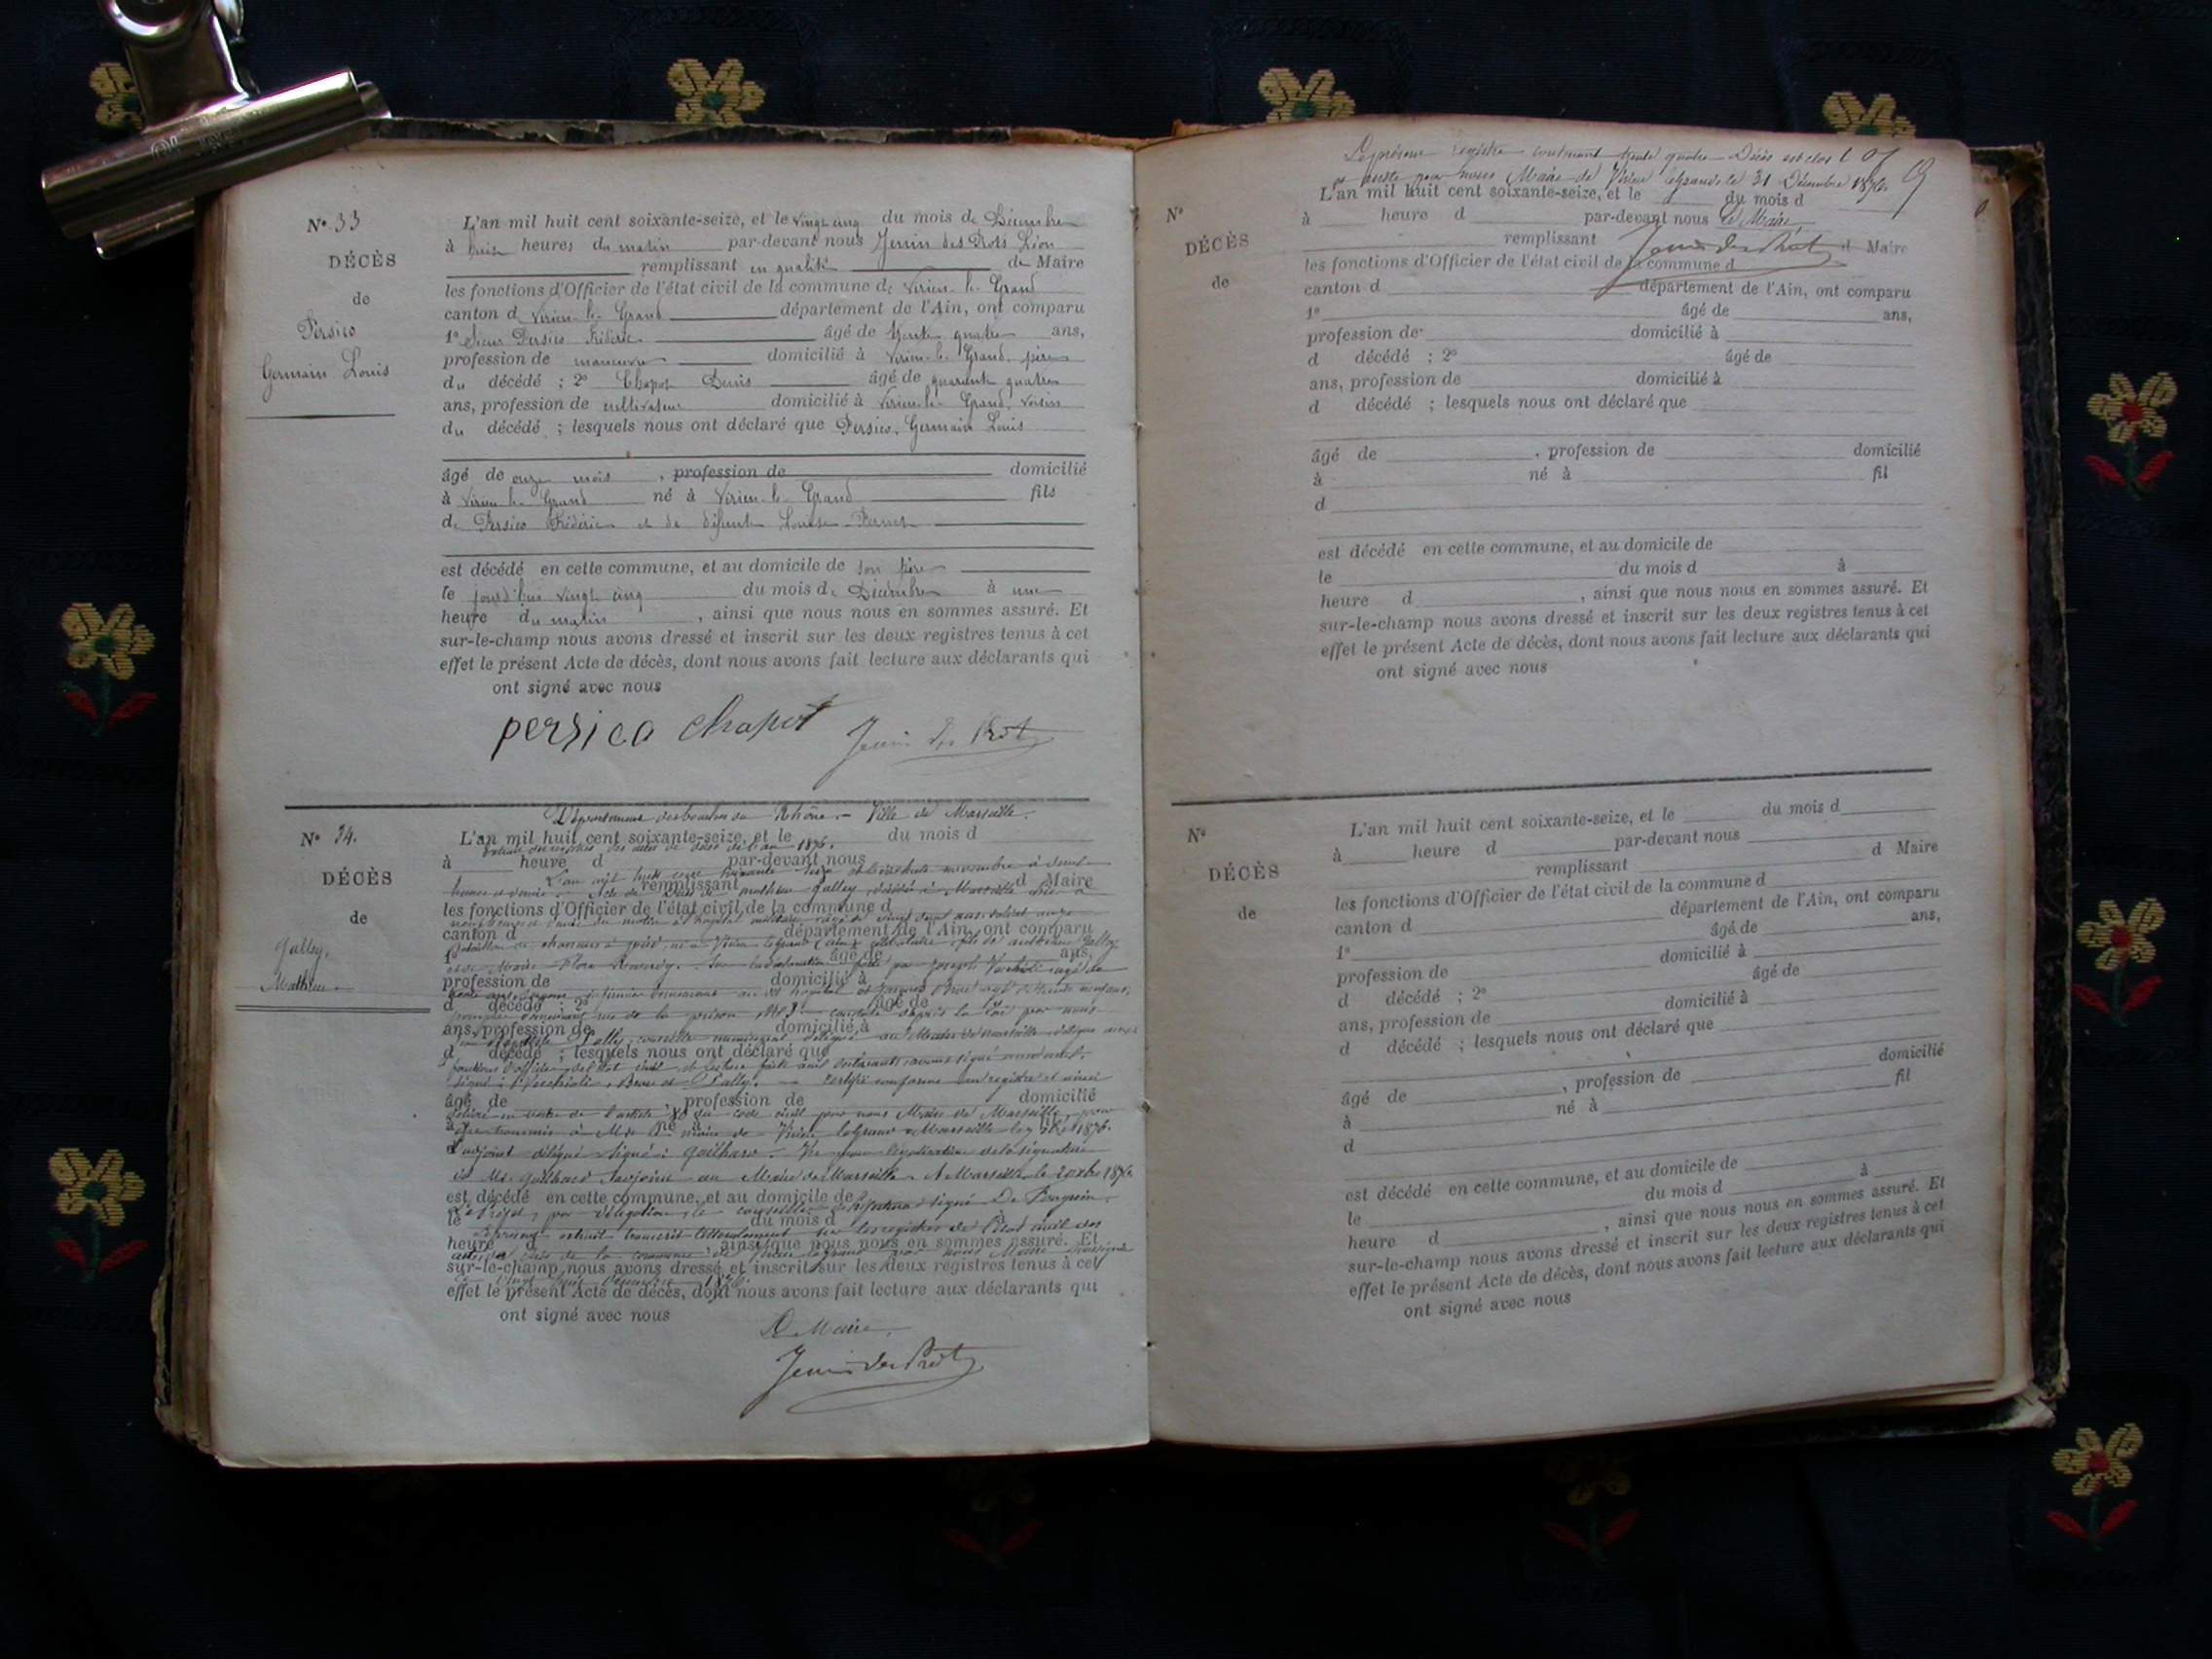 N° 33
DÉCÈS
de
Persico
Germain Louis
L'an mil huit cent soixante-seize, et le vingt cinq du mois de Décembre
à heures du matin par-devant nous Jenin des Prots Léon
remplissant en qualité de Maire
les fonctions d'Officier de l'état civil de la commune de Virieu-le-Grand
canton de Virieu-le-Grand département de l'Ain, ont comparu
1° Sieur Persico Frédéric âgé de trente quatre ans,
profession de manœuvre domicilié à Virieu-le-Grand, père
du décédé ; 2° Chapot Denis âgé de quarante quatre
ans, profession de cultivateur domicilié à Virieu-le-Grand, voisin
du décédé ; lesquels nous ont déclaré que Persico, Germain Louis
âgé de onze mois, profession de domicilié
à Virieu-le-Grand né à Virieu-le-Grand fils
de Persico Frédéric et de défunte Louise Pernet
est décédé en cette commune, et au domicile de son père
le jourd'hui vingt cinq du mois de Décembre à une
heure du matin, ainsi que nous nous en sommes assuré. Et
sur-le-champ nous avons dressé et inscrit sur les deux registres tenus à cet
effet le présent Acte de décès, dont nous avons fait lecture aux déclarants qui
ont signé avec nous
persico chapot Jenin des Prots
N° 34.
DÉCÈS
de
Galley,
Mathieu
Département des bouches du Rhône. — Ville de Marseille.
L'an mil huit cent soixante-seize, et le du mois d
extrait des registres des actes de décès de l'an 1876.
à heure d par-devant nous
L'an mil huit cent soixante seize et le trente novembre à
remplissant d Maire
Acte de décès de mathieu galley décédé à Marseille
les fonctions d'Officier de l'état civil de la commune d
du matin à l'hôpital militaire, âgé de vingt ans, soldat
canton d département de l'Ain, ont comparu
bataillon de chasseurs à pied, né à Virieu legrand (ain) célibataire, fils de Galley,
1° âgé de ans,
et de Marie Flora. Sur la déclaration faite par Joseph âgé de
profession de domicilié à
d décédé ; 2° âgé de
rue de la prison constaté d'après la loi par nous
ans, profession de domicilié à
conseiller municipal délégué au Maire de Marseille
d décédé ; lesquels nous ont déclaré que
fonctions d'officier de l'état civil, et lecture faite aux déclarants, avons signé
certifié conforme au registre et ainsi
âgé de , profession de domicilié
délivré en vertu de l'article 80 du code civil par nous Maire de Marseille, pour
à né à fil
être transmis à Mr le maire de Virieu legrand Marseille le 7 1876.
d
L'adjoint délégué signé: Guilhard. Vu pour légalisation de la signature
de Mr. Guilhard adjoint au Maire de Marseille. A Marseille le 20 xbre 1876
est décédé en cette commune, et au domicile de
Le Préfet, par délégation, le conseiller de préfecture signé
le du mois d à
extrait transcrit littéralement sur les registres de l'état civil des
heure d , ainsi que nous nous en sommes assuré. Et
actes de décès de la commune de Virieu legrand par nous Maire soussigné
sur-le-champ nous avons dressé et inscrit sur les deux registres tenus à cet
décembre 1876.
effet le présent Acte de décès, dont nous avons fait lecture aux déclarants qui
ont signé avec nous
Le Maire,
Jenin des Prots
Le présent registre contenant trente quatre Décès est clos
par nous Maire de Virieu le grand le 31 Décembre 1876.
N°
DÉCÈS
de
L'an mil huit cent soixante-seize, et le du mois d
à heure d par-devant nous Le Maire
remplissant Jenin des Prots d Maire
les fonctions d'Officier de l'état civil de la commune d
canton d département de l'Ain, ont comparu
1° âgé de ans,
profession de domicilié à
d décédé ; 2° âgé de
ans, profession de domicilié à
d décédé ; lesquels nous ont déclaré que
âgé de , profession de domicilié
à né à fil
d
est décédé en cette commune, et au domicile de
le du mois d à
heure d , ainsi que nous nous en sommes assuré. Et
sur-le-champ nous avons dressé et inscrit sur les deux registres tenus à cet
effet le présent Acte de décès, dont nous avons fait lecture aux déclarants qui
ont signé avec nous
N°
DÉCÈS
de
L'an mil huit cent soixante-seize, et le du mois d
à heure d par-devant nous
remplissant d Maire
les fonctions d'Officier de l'état civil de la commune d
canton d département de l'Ain, ont comparu
1° âgé de ans,
profession de domicilié à
d décédé ; 2° âgé de
ans, profession de domicilié à
d décédé ; lesquels nous ont déclaré que
âgé de , profession de domicilié
à né à fil
d
est décédé en cette commune, et au domicile de
le du mois d à
heure d , ainsi que nous nous en sommes assuré. Et
sur-le-champ nous avons dressé et inscrit sur les deux registres tenus à cet
effet le présent Acte de décès, dont nous avons fait lecture aux déclarants qui
ont signé avec nous